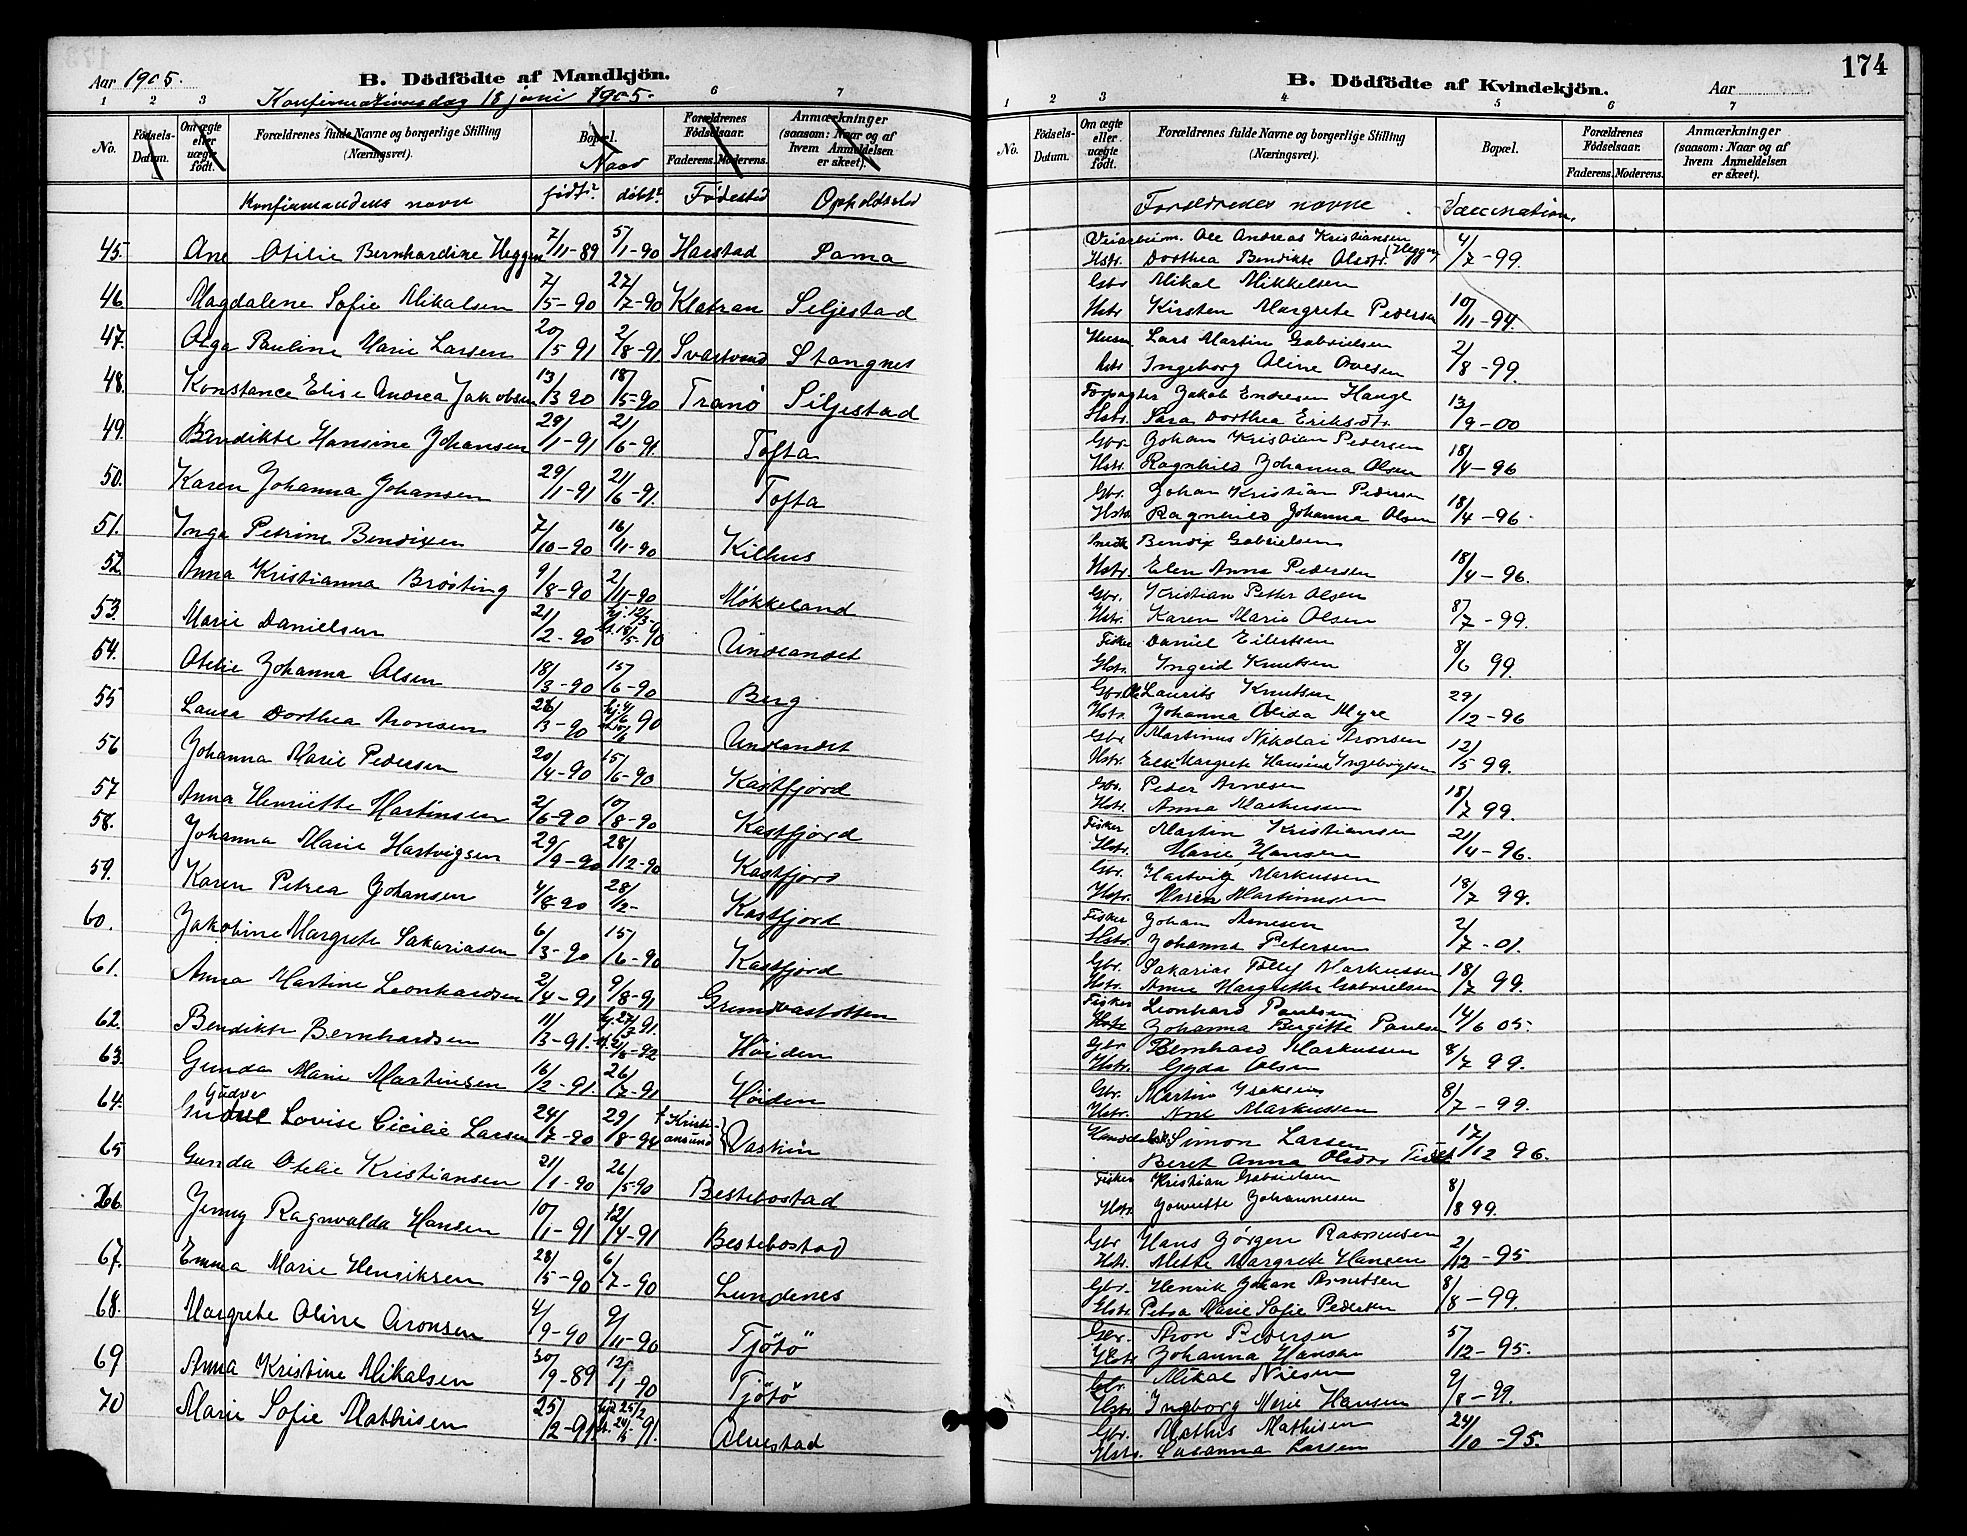 Aar 1905.
B. Dödfödte af Mandkjön.
Konfirmationsdag 18 juni 1905.
1 2 3 6 7
No.
Födsels-Datum.
Om ægte eller uægte födt.
Forældrenes fulde Navne og borgerlige Stilling (Næringsvei).
Bopæl.
Naar
Forældrenes Födselsaar.
Faderens. Moderens.
Anmærkninger (saasom: Naar og af hvem Anmeldelsen er skeet).
Konfirmandens navn født? døbt? Fødested Opholdssted
45. Ane Otilie Bernhardine Heggen 7/11-89 5/1-90 Harstad Sama
46. Magdalene Sofie Mikalsen 7/5-90 27/7-90 Klatran Seljestad
47. Olga Pauline Marie Larsen 20/5 91 2/8-91 Svartvand Stangnes
48. Konstance Elise Andrea Jakobsen 13/3 90 18/5-90 Tranø Seljestad
49. Bendikte Hansine Johansen 29/1-91 21/6-91 Tofta
50. Karen Johanna Johansen 29/1-91 21/6-91. Tofta
51. Inga Petrine Bendixen 7/10-90 16/11-90 Kilhus
52 Anna Kristianna Brøsting 9/8-90 2/11-90 Møkkeland
53. Marie Danielsen 21/2-90 hj. 12/3- 18/5-90 Undlandet
54. Otelie Johanna Olsen 18/3-90 15/6-90 Berg
55 Laura Dorthea Aronsen 28/3-90 90 Undlandet
56 Johanna Marie Pedersen 20/4-90 15/6-90 Kastfjord
57 Anna Henriette Martinsen 2/6-90 10/8-90 Kastfjord
58. Johanna Marie Hartvigsen 29/9-90 28/12-90 Kastfjord
59. Karen Petrea Johansen 4/8-90 28/12- Kastfjord
60. Jakobine Margrete Sakariasen 6/3-90 15/6-90 Kastfjord
61. Anna Martine Leonhardsen 2/4-91 9/8-91 Grundvasbotten
62. Bendikte Bernhardsen 11/3-91. hj. 27/3 91. Høiden
63. Gunda Marie Martinsen 16/2-91. 26/7-91 Høiden
64. Gudver Lovise Cicilie Larsen 24/7-90 29/8-94 f. Kristiansund Vashün
65 Gunda Otelie Kristiansen 21/1-90 26/5-90 Bestebostad
66. Jenny Ragnvalda Hansen 10/1-91 12/4-91 Bestebostad
67. Emma Marie Henriksen 28/5-90 6/7-90 Lundenes
68. Margrete Oline Aronsen 4/9-90 9/11-90 Tjötö
69 Anna Kristine Mikalsen 30/9-89 12/1-90 Tjötö
70 Marie Sofie Mathisen 25/2-91 hj. 25/2 91. Alvestad
174
B. Dödfödte af Kvindekjön.
Aar
1 2 3 4 5 6 7
No.
Födsels-Datum.
Om ægte eller uægte födt.
Forældrenes fulde Navne og borgerlige Stilling (Næringsvei).
Bopæl.
Forældrenes Födselsaar.
Faderens. Moderens.
Anmærkninger (saasom: Naar og af hvem Anmeldelsen er skeet).
Forældrenes navne. Vaccination.
Veiarbeim. Ole Andreas Kristiansen
Hstr. Dorthea Bendikte Olsdtr. (Heggen) 4/7-99.
Gbr Mikal Mikkelsen
Hstr. Kirsten Margrete Pedersen 10/11-94.
Husm. Lars Martin Gabrielsen
Hstr Ingeborg Oline Ovesen 2/8-99.
Forpagter Jakob Endresen Hauge
Hstr. Sara Dorthea Eriksdtr. 13/9-00
Gbr. Johan Kristian Pedersen
Hstr. Ragnhild Johanna Olsen 18/4-96
Gbr. Johan Kristian Pedersen
Hstr Ragnhild Johanna Olsen 18/4-96.
Snedk Bendix Gabrielsen
Hstr. Elen Anna Pedersen 18/4-96.
Gbr. Kristian Petter Olsen
Hstr. Karen Marie Olsen 8/7-99.
Fisker Daniel Eilertsen
Hstr. Ingeid Knutsen 8/6 99.
Gbr. Ole Laurits Knutsen
Hstr. Johanna Olida Myre 29/12-96
Gbr Martinus Nikolai Aronsen
Hstr. Elen Margrete Hansine Ingebrigtsen 12/5 99.
Gbr. Peder Arnesen
Hstr. Anna Markussen 18/7 99.
Fisker Martin Kristiansen
Hstr. Marie Hansen 21/4-96.
Gbr. Hartvig Markussen
Hstr. Maren Martinusen 18/7 99.
Fisker Johan Arnesen
Hstr. Johanna Petersen 2/7-01.
Gbr. Sakarias Tolly Markussen
Hstr. Anne Margrethe Gabrielsen 18/7 99.
Fisker Leonhard Paulsen
Hstr Johanna Bergitte Paulsen 14/6 05.
Gbr Bernhard Markussen
Hstr. Gyda Olsen 8/7 99.
Gbr. Martin Isaksen
Hstr. Ane Markussen 8/7-99.
Simon Larsen
Beret Anna Olsdtr 17/12 96.
Fisker Kristian Gabrielsen
Hstr. Johannesen 8/8 99.
Gbr Hans Jørgen Rasmusen
Hstr. Mette Margrete Hansen 2/12-95
Gbr. Henrik Johan Arntsen
Hstr Petra Marie Sofie Pedersen 8/8-99.
Gbr. Aron Pedersen
Hstr Johanna Hansen 5/12-95.
Gbr. Mikal Nilsen
Hstr Ingeborg Marie Hansen 9/8-99.
Gbr. Mathis Mathisen
Hstr. Susanna Larsen 24/10-95.